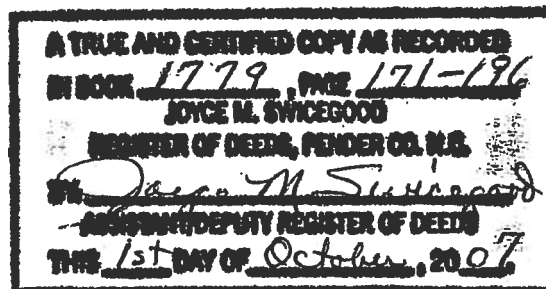 A TRUE AND CERTIFIED COPY AS RECORDED
IN BOOK 1779, PAGE 171-196
JOYCE M. SWICEGOOD
REGISTER OF DEEDS, PENDER CO. N.C.
BY Joyce M. Swicegood
ASSISTANT/DEPUTY REGISTER OF DEEDS
THIS 1st DAY OF October, 2007.